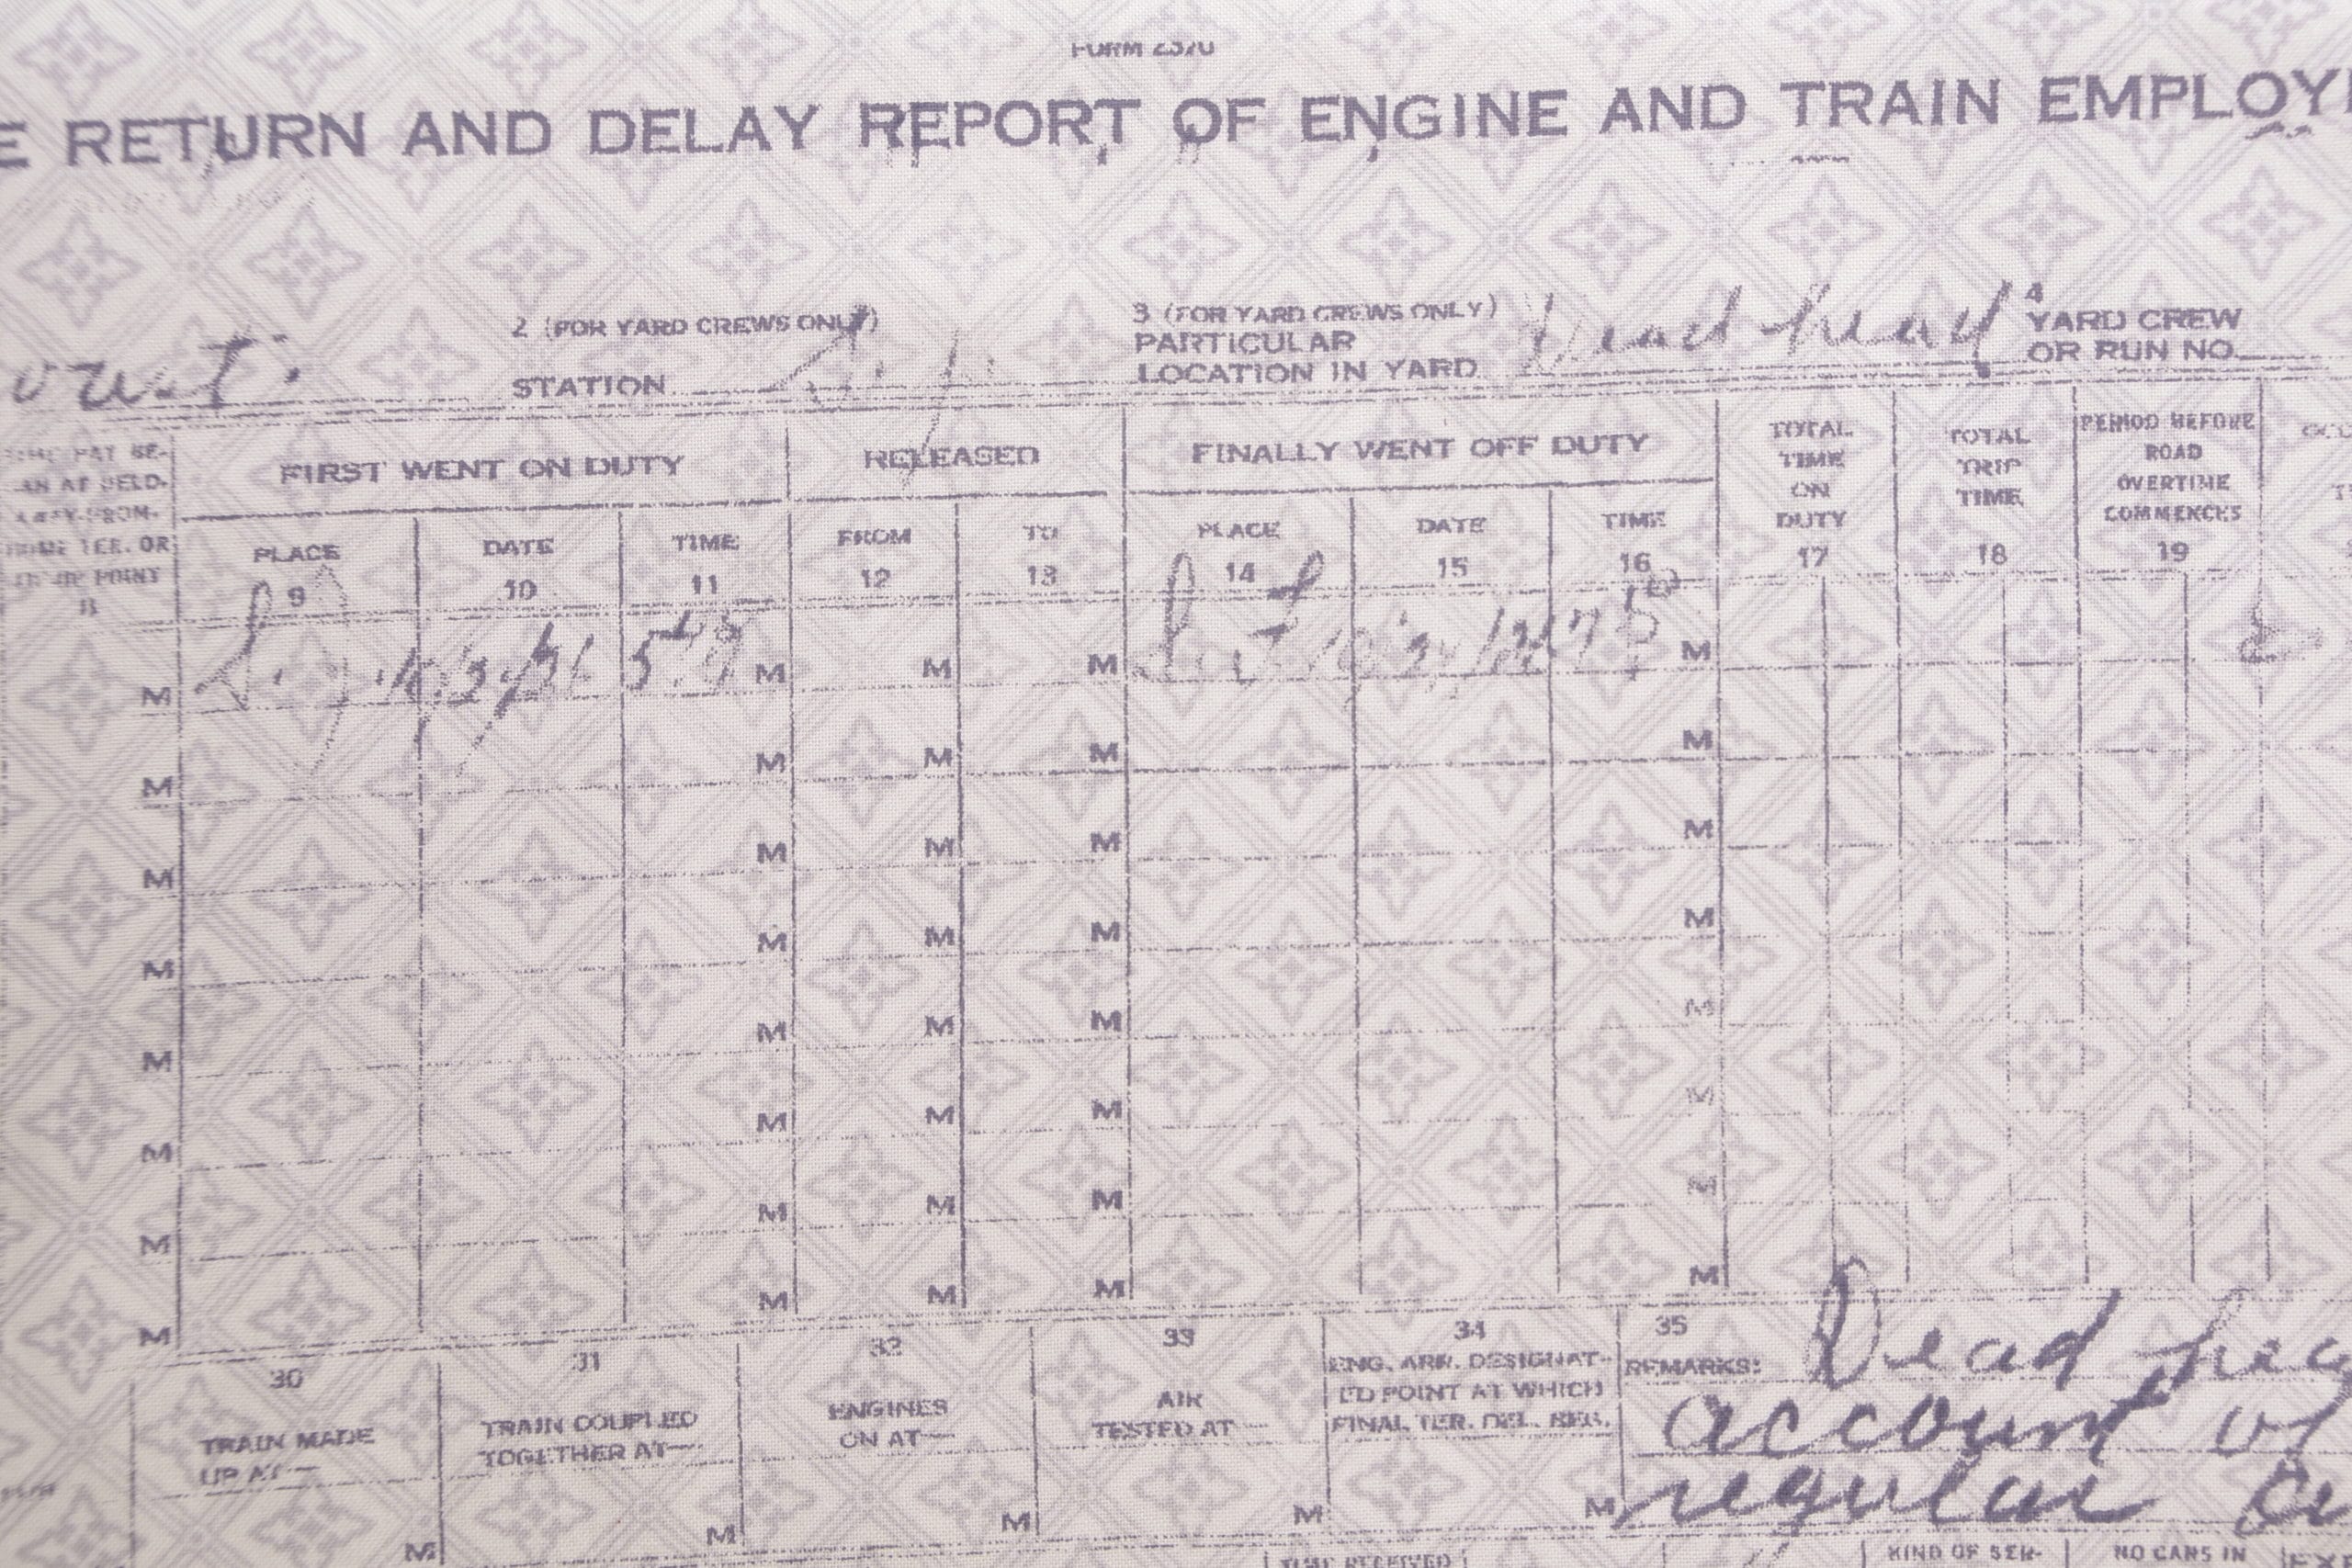 FORM 2570
E RETURN AND DELAY REPORT OF ENGINE AND TRAIN EMPLOY
2 (FOR YARD CREWS ONLY)
STATION
3 (FOR YARD CREWS ONLY)
PARTICULAR
LOCATION IN YARD Dead head
4
YARD CREW
OR RUN NO.
FIRST WENT ON DUTY
RELEASED
FINALLY WENT OFF DUTY
TOTAL
TIME
ON
DUTY
17
TOTAL
TRIP
TIME
18
PERIOD BEFORE
ROAD
OVERTIME
COMMENCES
19
HOME TER. OR
POINT
PLACE
9
DATE
10
TIME
11
FROM
12
TO
13
PLACE
14
DATE
15
TIME
16
M M M M M
M M M M M
M M M M M
M M M M M
M M M M M
M M M M M
M M M M M
M M M M M
30
TRAIN MADE
UP AT
M
31
TRAIN COUPLED
TOGETHER AT
M
32
ENGINES
ON AT
M
33
AIR
TESTED AT
M
34
ENG. ARR. DESIGNAT-
ED POINT AT WHICH
FINAL TER. DEL. BEG.
M
35
REMARKS: Dead hea
account of
regular
TIME RECEIVED
KIND OF SER-
NO CARS IN